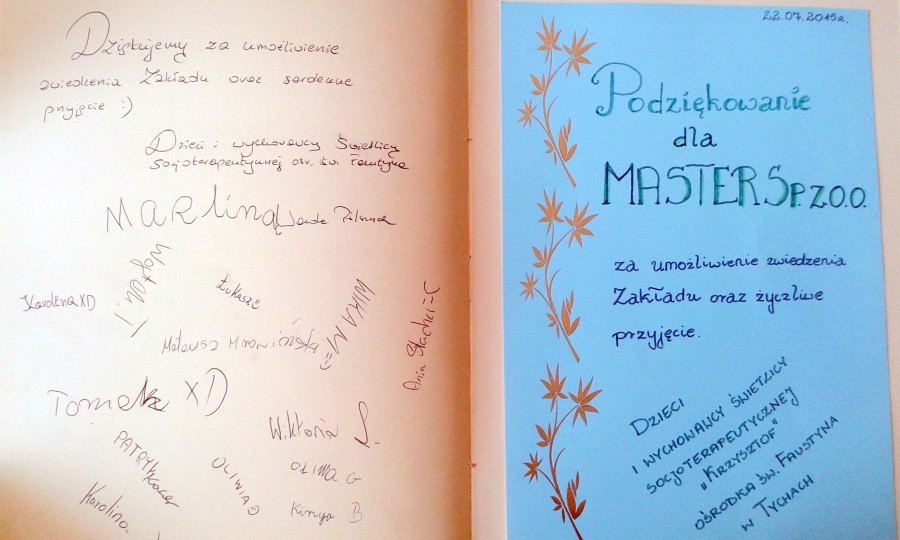 Dziękujemy za umożliwienie
zwiedzenia Zakładu oraz serdeczne
przyjęcie :)
Dzieci i wychowawcy Świetlicy
Socjoterapeutycznej ośr. św. Faustyna
MARLina
Karolina XD
Łukasz
MIKA M =)
Ania Stachu =C
Mateusz
Tomek XD
Wiktoria S.
PATRYK
OLIWIA
OLIMA G
Kinga B
Karolina
22.07.2015r.
Podziękowanie
dla
MASTER Sp. z o.o.
za umożliwienie zwiedzenia
Zakładu oraz życzliwe
przyjęcie.
DZIECI
I WYCHOWAWCY ŚWIETLICY
SOCJOTERAPEUTYCZNEJ
„KRZYSZTOF"
OŚRODKA ŚW. FAUSTYNA
W TYCHACH